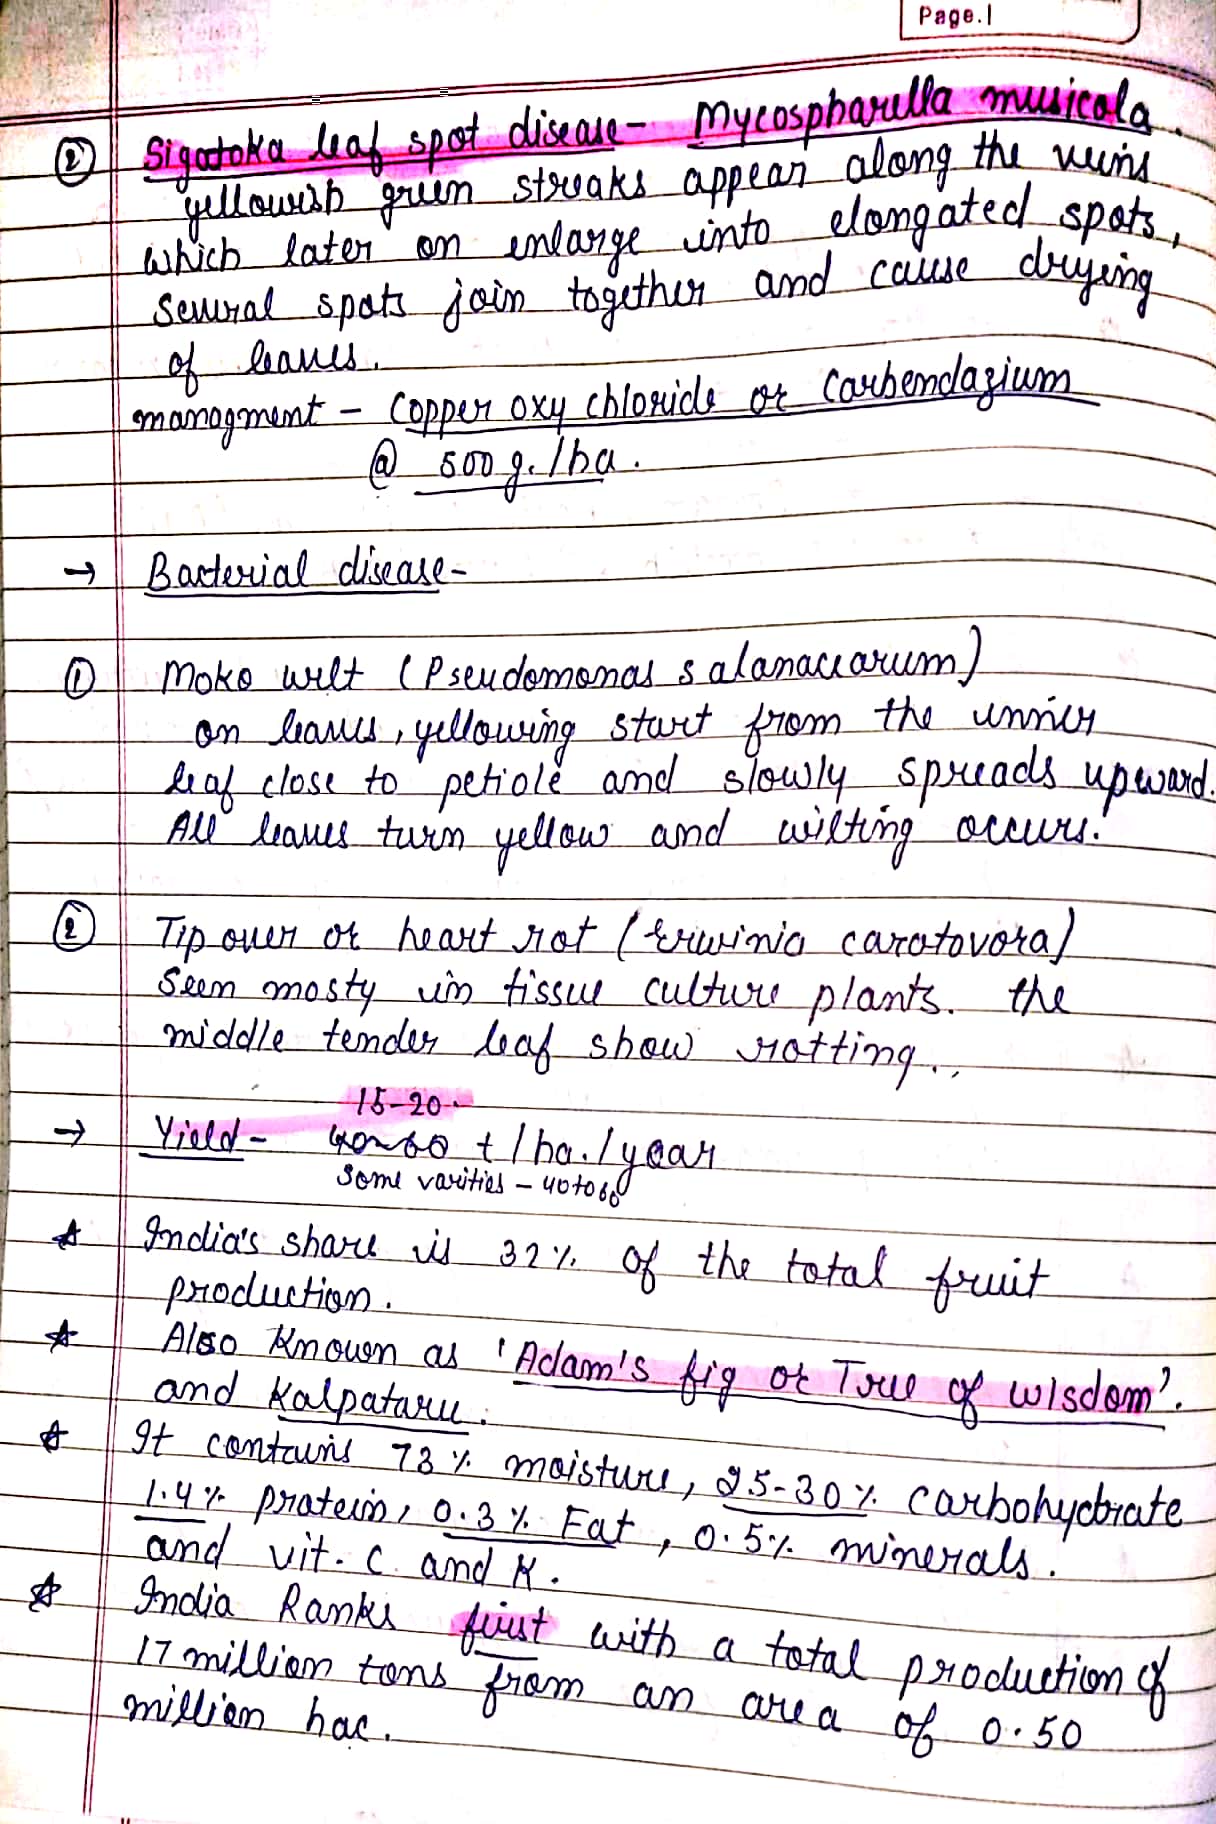 Page.1
② Sigatoka leaf spot disease - Mycospharella musicola.
yellowish green streaks appear along the veins
which later on enlarge into elongated spots,
several spots join together and cause drying
of leaves.
managment - Copper oxy chloride or Carbendazium
@ 500 g./ha.
→ Bacterial disease-
① Moko wilt (Pseudomonas salanacearum)
on leaves, yellowing start from the inner
leaf close to petiole and slowly spreads upward.
All leaves turn yellow and wilting occurs.
② Tip over or heart rot (Erwinia caratovora)
Seen mosty in tissue culture plants. the
middle tender leaf show rotting..
15-20
→ Yield - 40-60 t/ha./year
Some varities - 40 to 60
☆ India's share is 32% of the total fruit
production.
☆ Also Known as 'Adam's fig or Tree of wisdom'.
and Kalpataru.
☆ It contains 73% moisture, 25-30% carbohydrate
1.4% protein, 0.3% Fat, 0.5% minerals.
and vit. C and K.
☆ India Ranks first with a total production of
17 million tons from an area of 0.50
million hac.